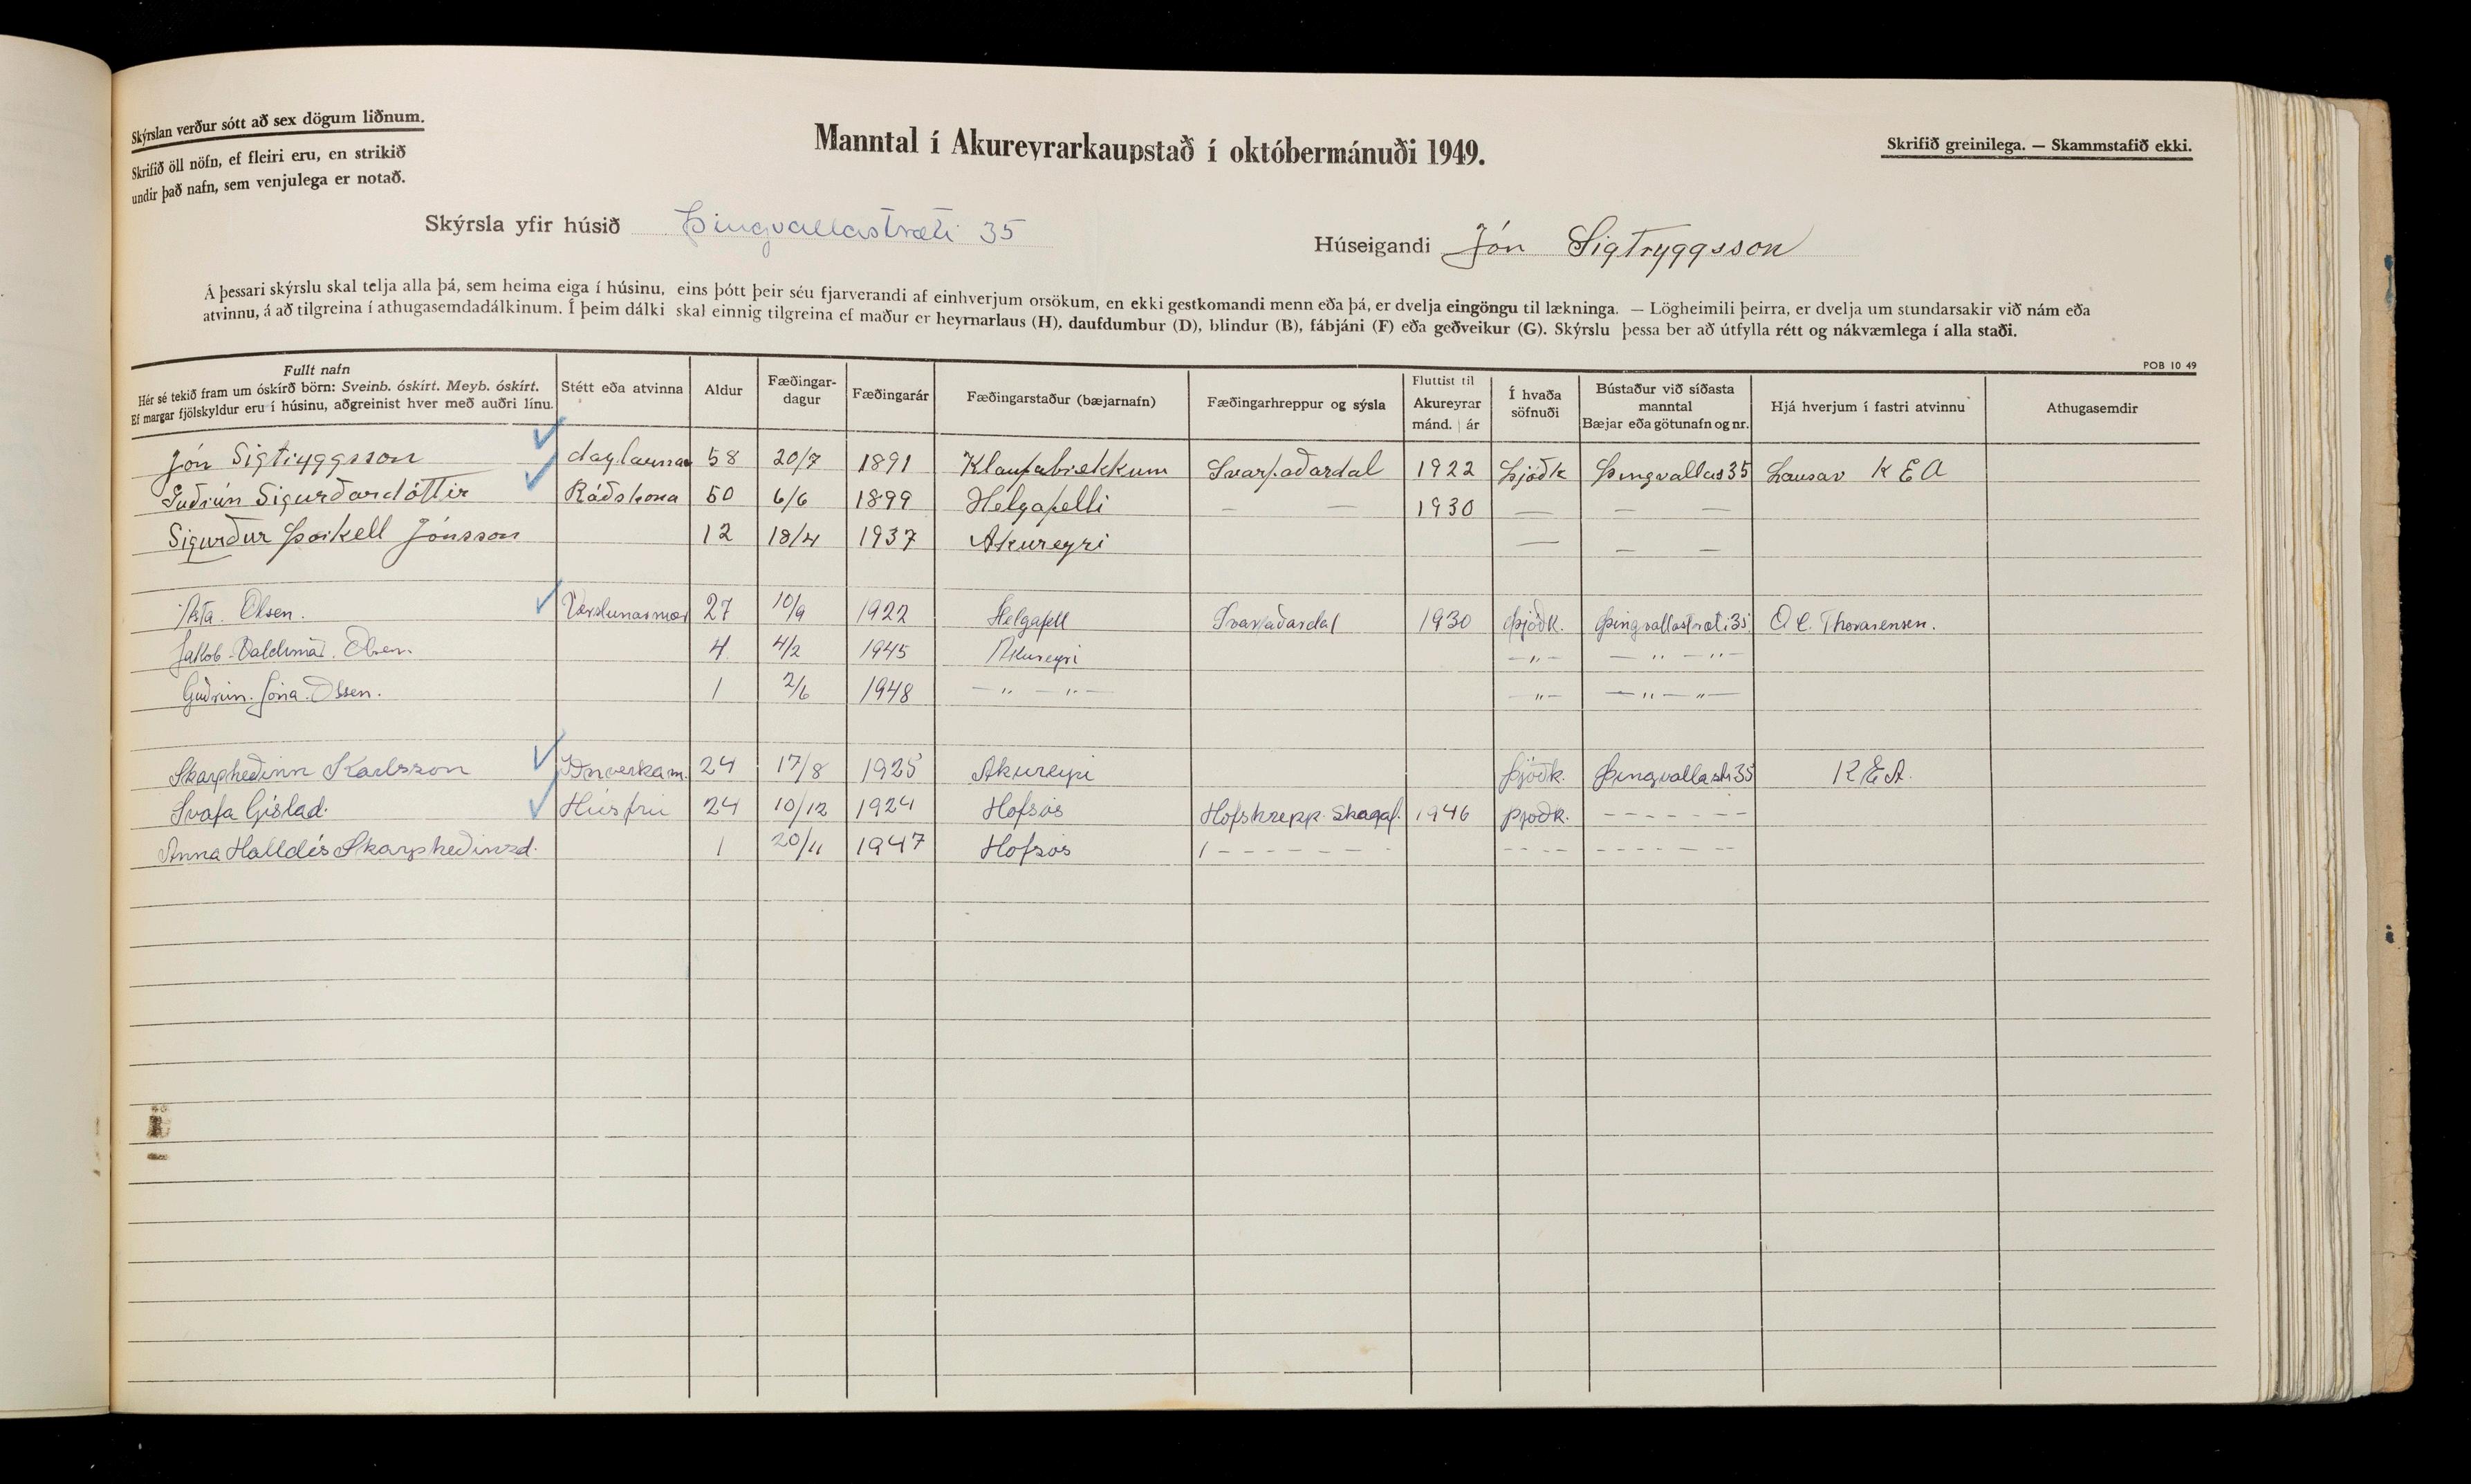 Skýrslan verður sótt að sex dögum liðnum.
Skrifið öll nöfn, ef fleiri eru, en strikið
undir það nafn, sem venjulega er notað.
Manntal í Akureyrarkaupstað í októbermánuði 1949.
Skrifið greinilega. — Skammstafið ekki.
Skýrsla yfir húsið Þingvallastræti 35
Húseigandi Jón Sigtryggsson
Á þessari skýrslu skal telja alla þá, sem heima eiga í húsinu, eins þótt þeir séu fjarverandi af einhverjum orsökum, en ekki gestkomandi menn eða þá, er dvelja eingöngu til lækninga. — Lögheimili þeirra, er dvelja um stundarsakir við nám eða
atvinnu, á að tilgreina í athugasemdadálkinum. Í þeim dálki skal einnig tilgreina ef maður er heyrnarlaus (H), daufdumbur (D), blindur (B), fábjáni (F) eða geðveikur (G). Skýrslu þessa ber að útfylla rétt og nákvæmlega í alla staði.
POB 10 49
Fullt nafn
Hér sé tekið fram um óskírð börn: Sveinb. óskírt. Meyb. óskírt.
Ef margar fjölskyldur eru í húsinu, aðgreinist hver með auðri línu.
Stétt eða atvinna
Aldur
Fæðingar-
dagur
Fæðingarár
Fæðingarstaður (bæjarnafn)
Fæðingarhreppur og sýsla
Fluttist til
Akureyrar
mánd. | ár
Í hvaða
söfnuði
Bústaður við síðasta
manntal
Bæjar eða götunafn og nr.
Hjá hverjum í fastri atvinnu
Athugasemdir
Jón Sigtryggsson 58 20/7 1891 Klaufabrekkum Svarfaðardal 1922 Þjóðk Þingvallas 35 Lausav K E A
Guðrún Sigurðardóttir Ráðskona 50 6/6 1899 Helgafelli — — 1930 — — —
Sigurður Þorkell Jónsson 12 18/4 1937 Akureyri — — —
Ásta Olsen. 27 10/9 1922 Helgafell Svarfaðardal 1930 Þjóðk. Þingvallastræti 35. O. C. Thorarensen.
Jakob Valdimar Olsen. 4 4/2 1945 Akureyri —"— — " — " —
Guðrún Jóna Olsen. 1 2/6 1948 — " — " — —"— — " — " —
Skarpheðinn Karlsson Iðnverkam. 24 17/8 1925 Akureyri Þjóðk. Þingvallastr 35 K E A.
Svafa Gíslad. Húsfrú 24 10/12 1924 Hofsós Hofshrepp. Skagaf. 1946 Þjóðk. - - - - - -
Anna Halldís Skarpheðinsd. 1 20/11 1947 Hofsós - - - - - - - - - - - - - - - -